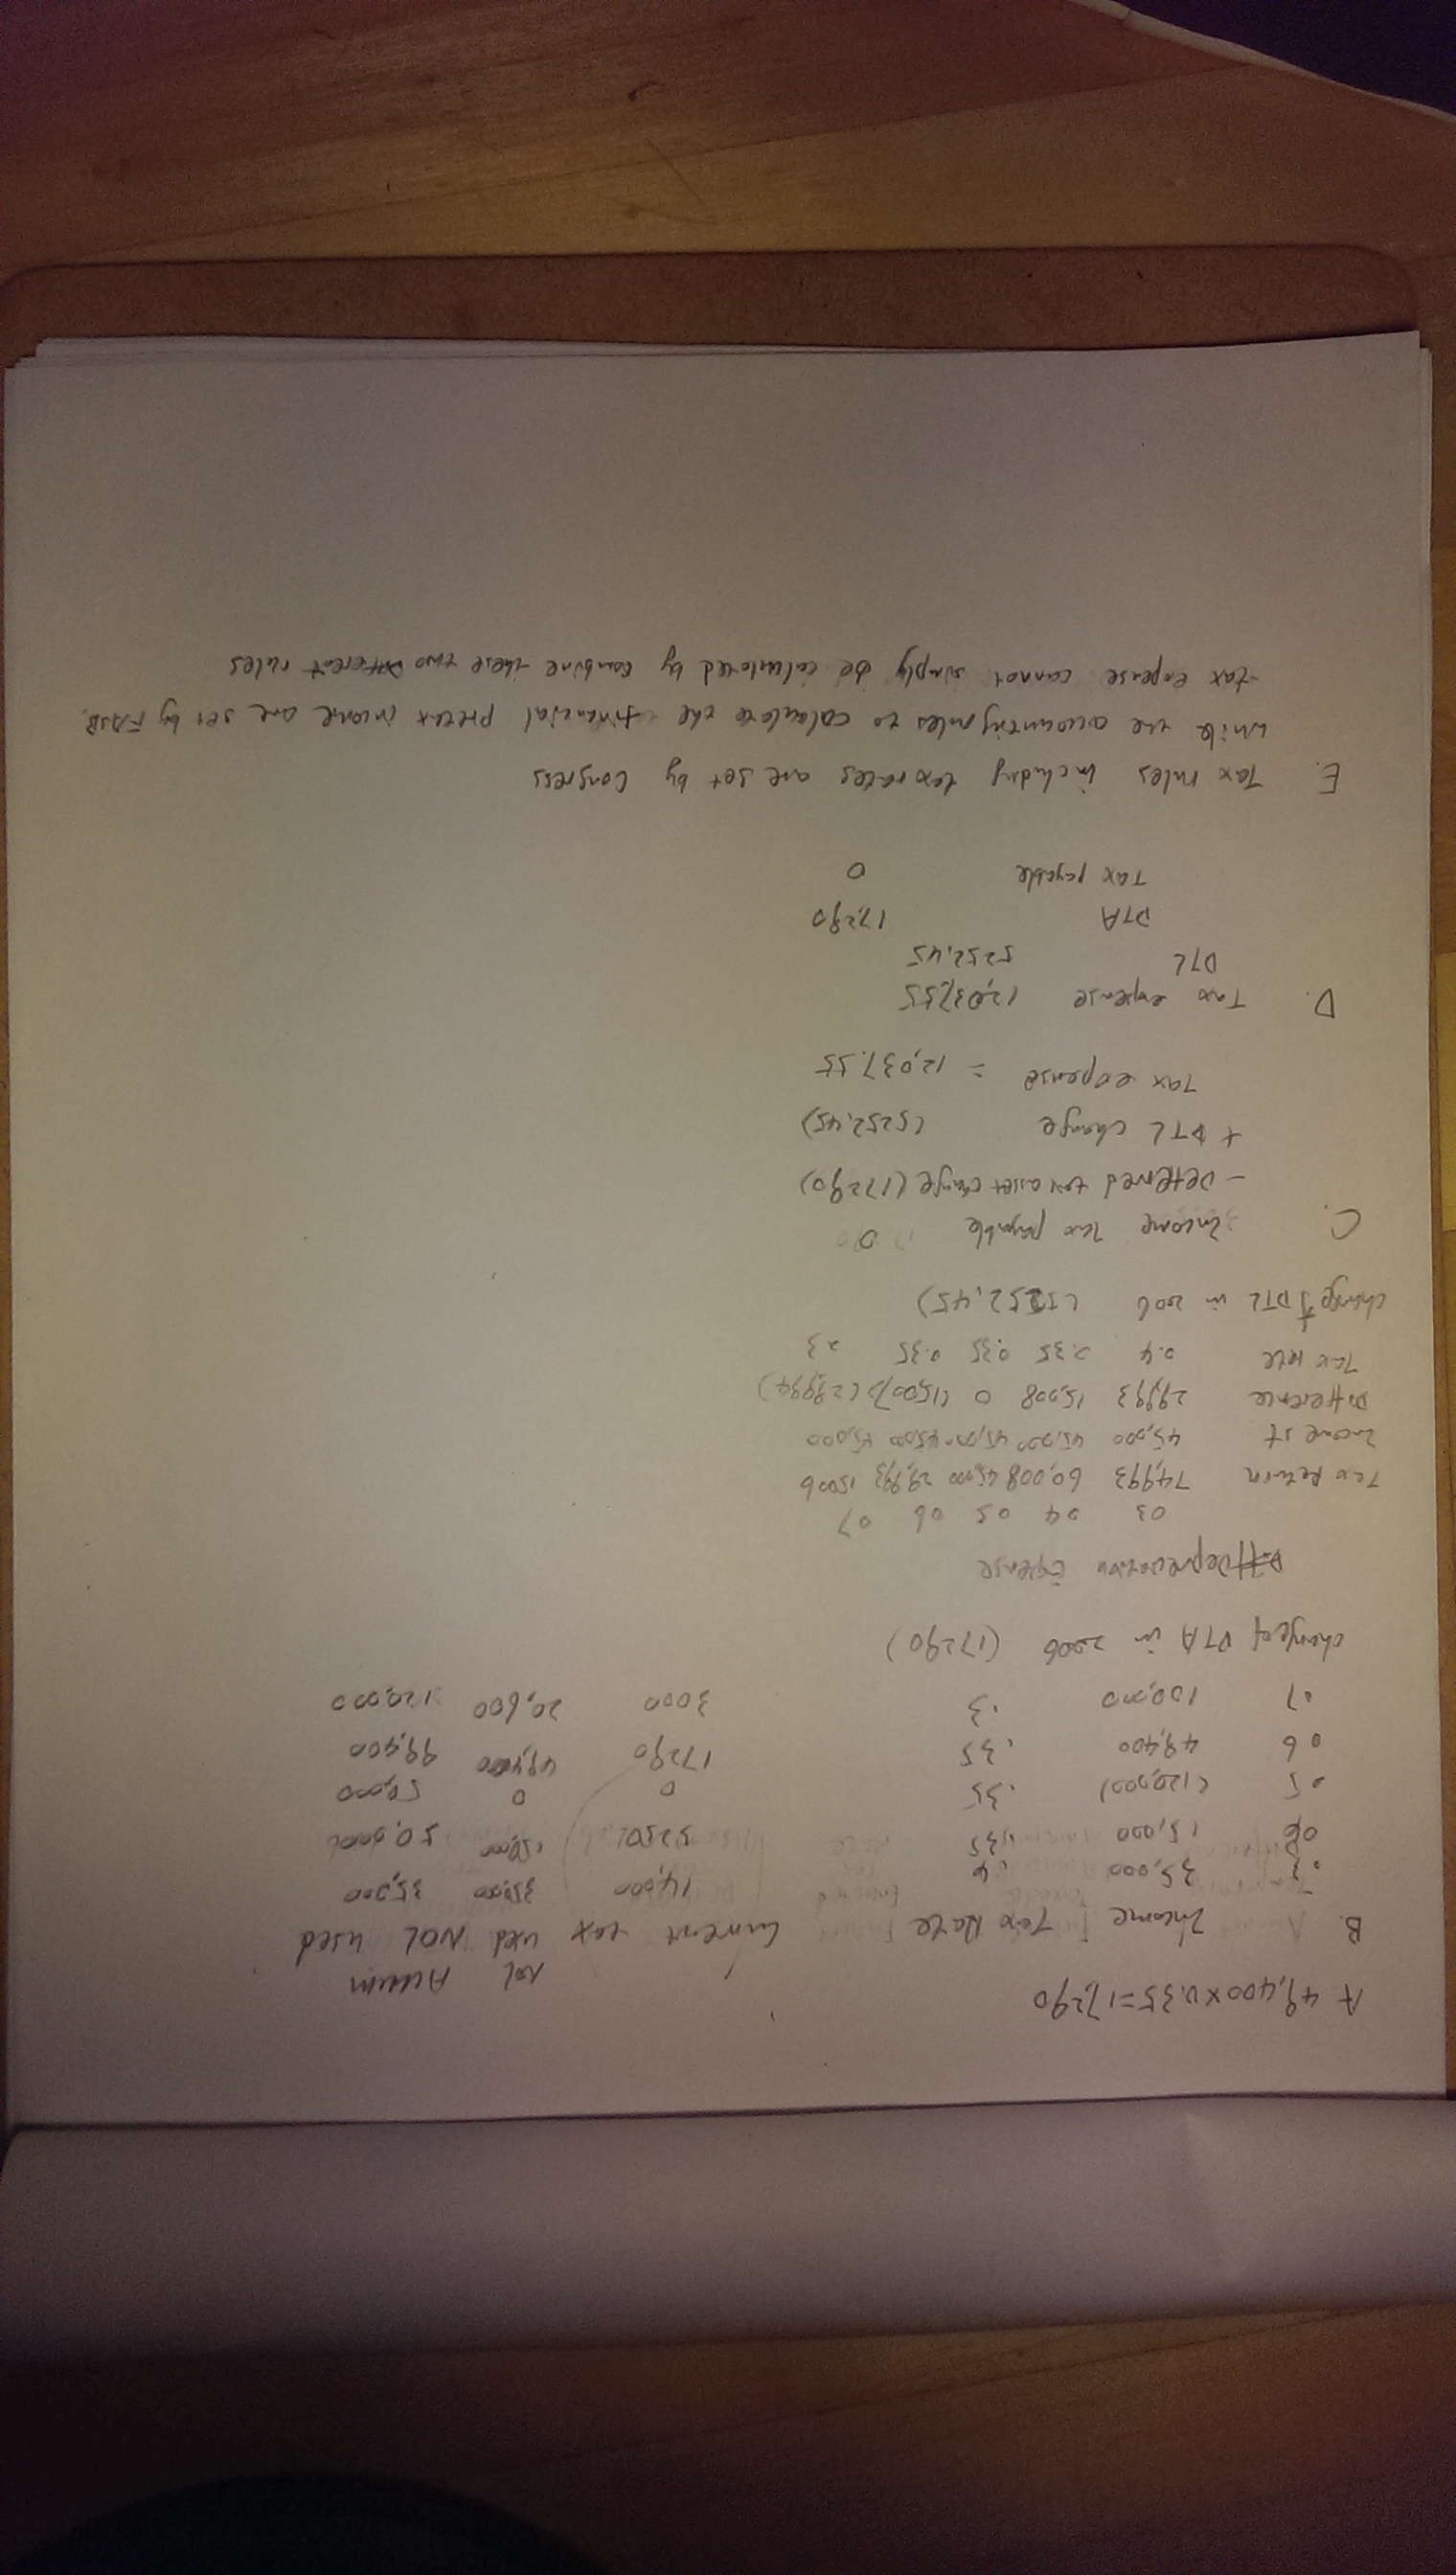 A 49,400×0.35=17,290
NOL Accum
B. Income Tax Rate Current tax used NOL used
.3 35,000 .4 14,000 35,000 35,000
04 15,000 .35 5250 15,000 50,000
.5 (120,000) .35 0 0 50,000
06 49,400 .35 17290 49,400 99,400
.7 100,000 .3 3000 20,600 120,000
change of DTA in 2006 (17290)
Depreciation Expense
03 04 05 06 07
Tax Return 74,993 60,008 45,000 29,993 15006
Income st 45,000 45,000 45,000 45,000 45,000
Difference 29,993 15,008 0 (15,007) (29,994)
Tax rate 0.4 0.35 0.35 0.35 0.3
change of DTL in 2006 (5252.45)
C. Income Tax payable 0
- Deferred tax asset change (17290)
+ DTL change (5252.45)
Tax expense = 12,037.55
D. Tax expense 12,037.55
DTL 5252.45
DTA 17,290
Tax payable 0
E. Tax rules including tax rates are set by Congress
while the accounting rules to calculate the financial pretax income are set by FASB.
tax expense cannot simply be calculated by combine these two Different rules